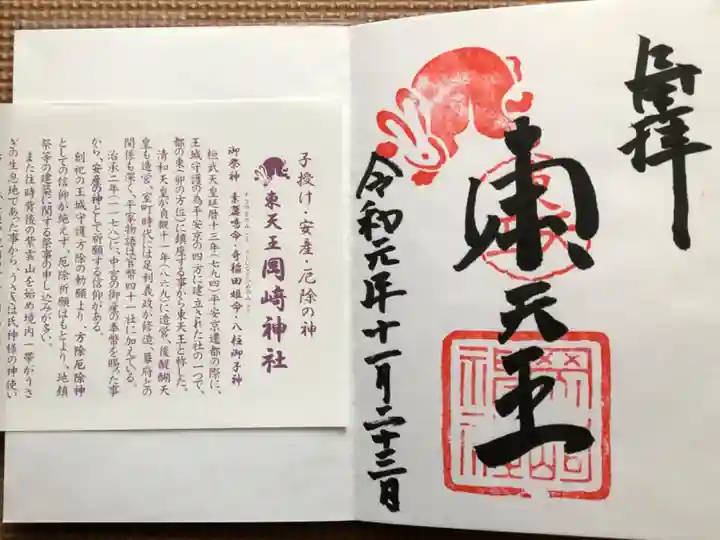 奉拝
東天王
岡崎神社
令和元年十一月二十三日
子授け・安産・厄除の神
東天王 岡﨑神社
御祭神 素盞鳴命・奇稲田姫命・八柱御子神
桓武天皇延暦十三年(七九四)平安京遷都の際に、
王城守護の為平安京の四方に建立された社の一つで、
都の東(卯の方位)に鎮座する事から東天王と称した。
清和天皇が貞観十一年(八六九)に造営、後醍醐天
皇も造営、室町時代には足利義政が修造、幕府との
関係も篤く、平家物語は官幣四十一社に加えている。
治承二年(一一七八)に、中宮の御産の奉幣を賜った事
から、安産の神として祈願する信仰がある。
創祀の王城守護方除の勅願より、方除厄除神
としての信仰が絶えず、厄除祈願はもとより、地鎮
祭等の建築に関する祭事の申し込みが多い。
また往時背後の紫雲山を始め境内一帯がうさ
ぎの生息地であった事から、うさぎは氏神様の神使い